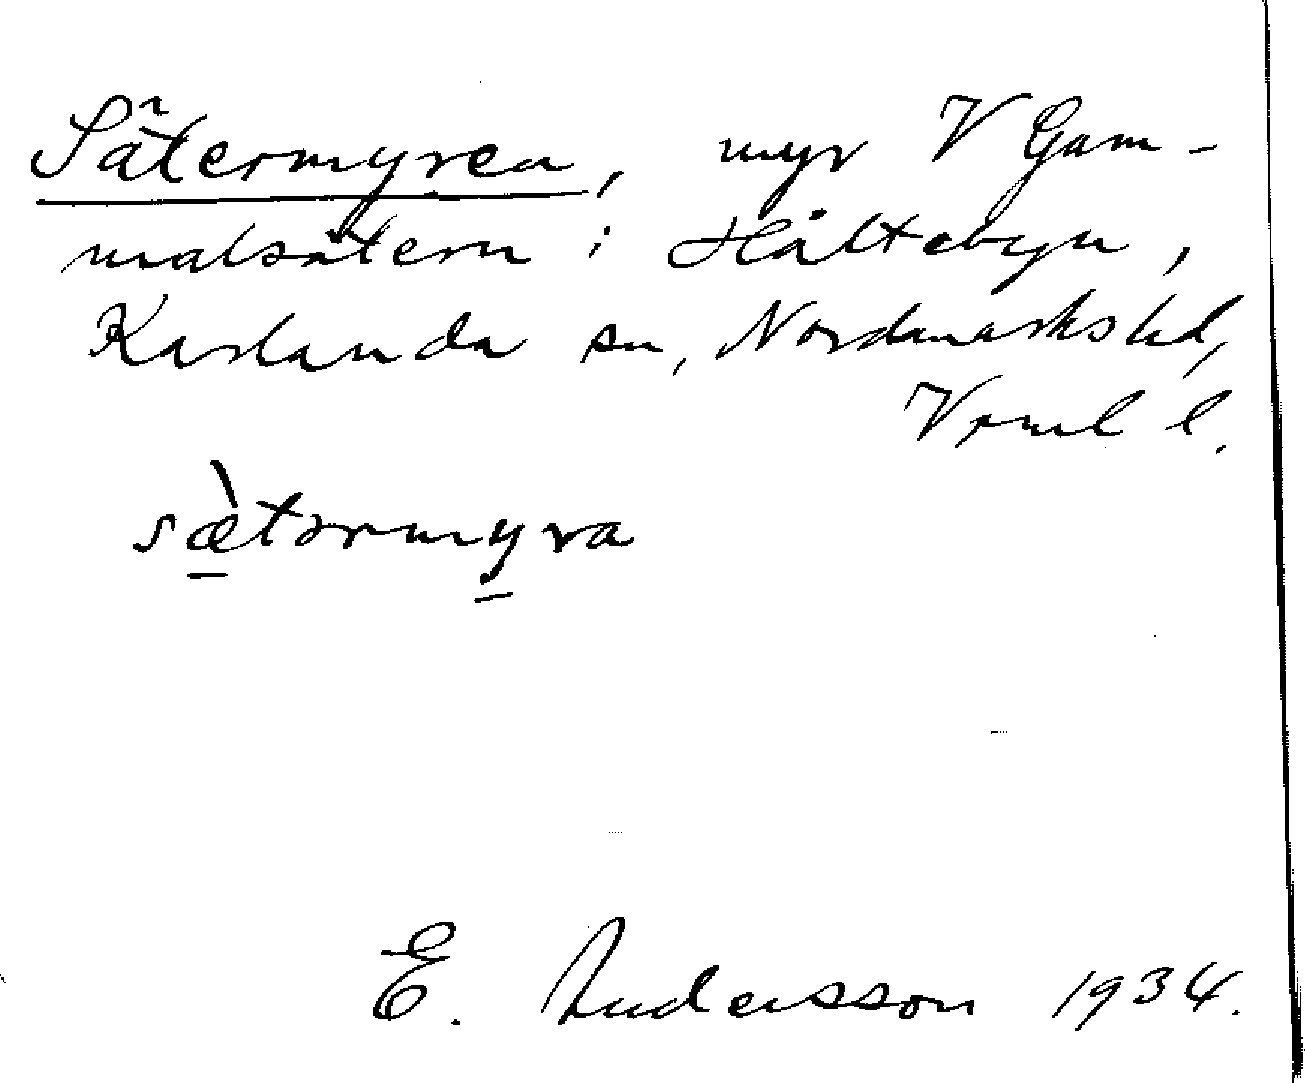 Sätermyren, myr V Gam-
malsätern i Hältebyn,
Karlanda sn, Nordmarks hd,
Vrml l.
sæ̀tərmyra
E. Andersson 1934.